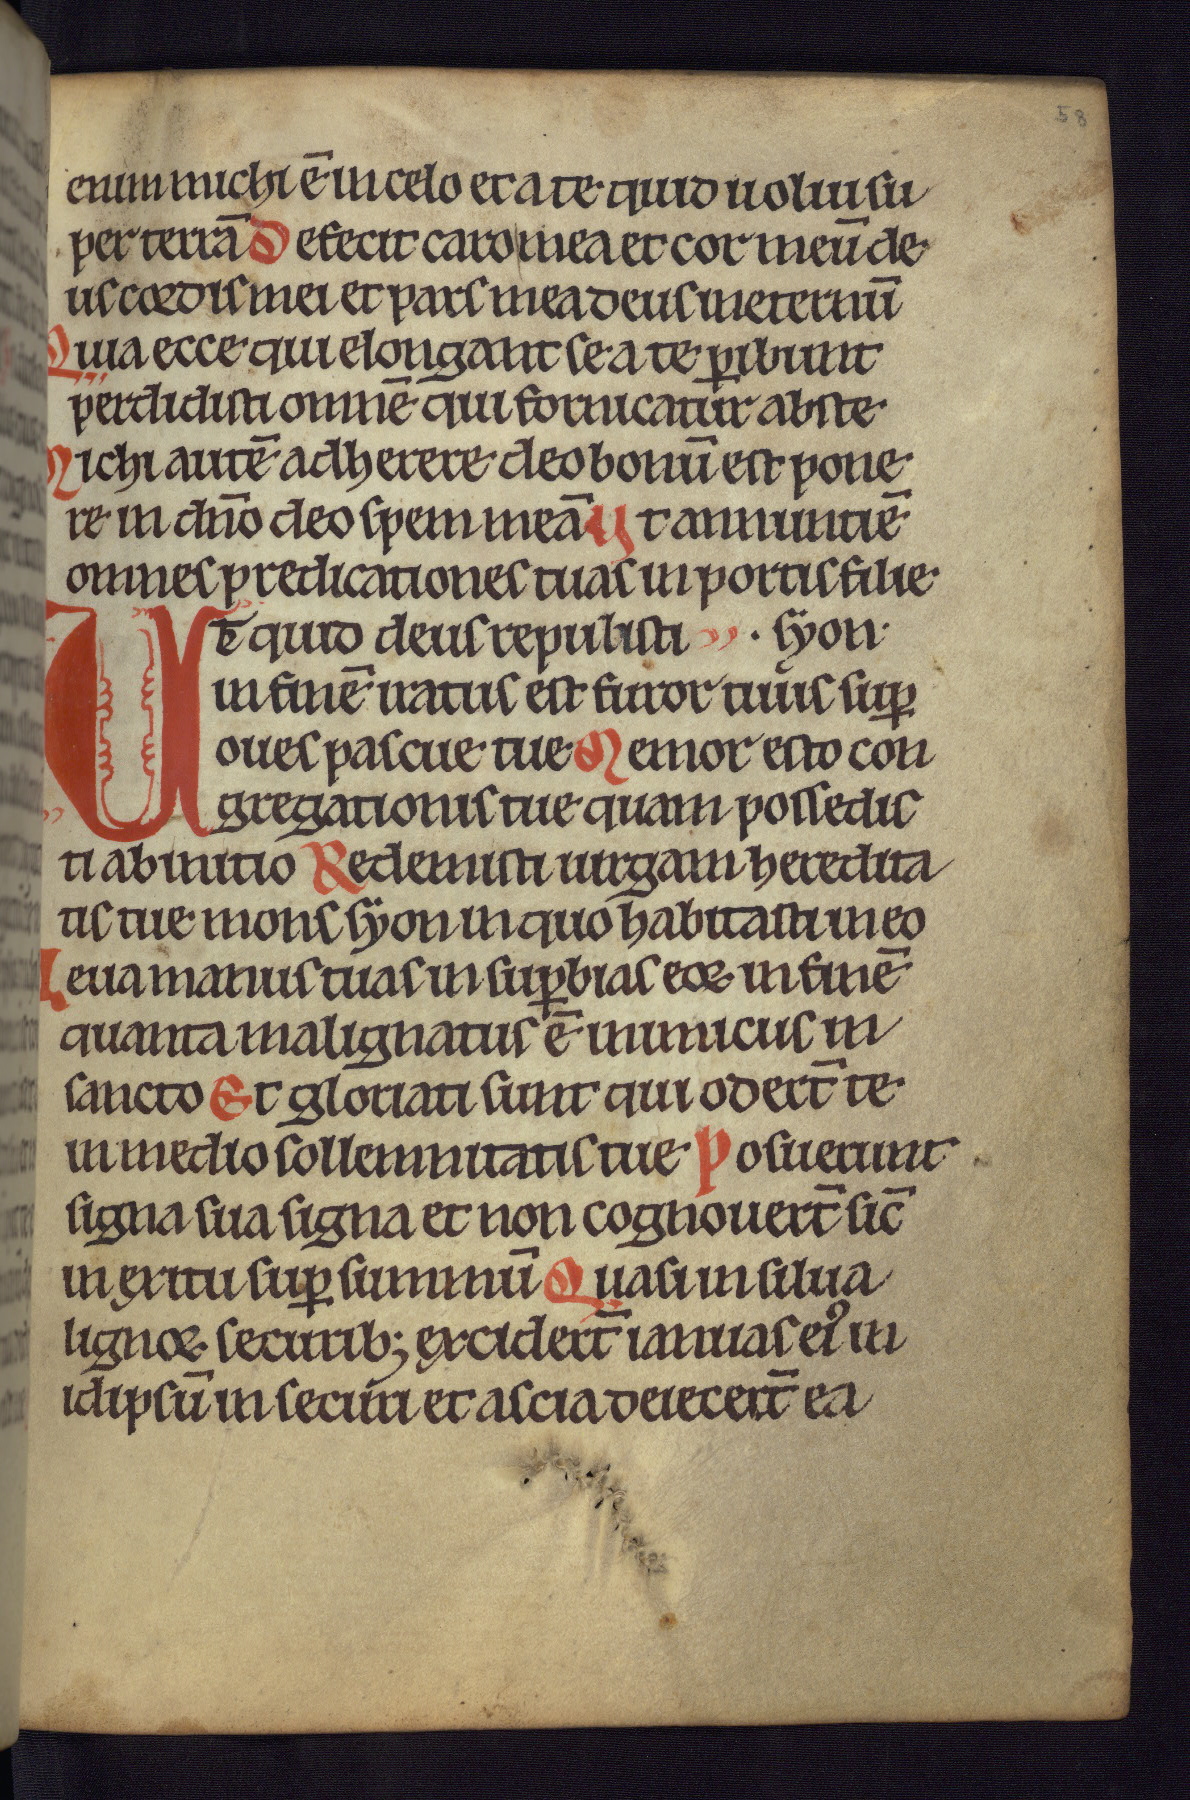 58
enim michi ē in celo et a te quid uolui su
per terrā Defecit caro mea et cor meū de
us cordis mei et pars mea deus in eternū
Quia ecce qui elongant se a te ꝑibunt
perdidisti omnē qui fornicatur abs te
Michi autē adherere deo bonū est pone
re in dn̄o deo spem meā Ut annuntiē
omnes predicationes tuas in portis filie
Ut quid deus repulisti · syon
in finē iratus est furor tuus suꝑ
oues pascue tue Memor esto con
gregationis tue quam possedis
ti ab initio Redemisti uirgam heredita
tis tue mons syon in quo habitasti in eo
Leua manus tuas in suꝑbias eoꝝ in finē
quanta malignatus ē inimicus in
sancto Et gloriati sunt qui odert̄ te
in medio sollemnitatis tue Posuerunt
signa sua signa et non cognouert̄ sic̄
in exitu suꝑ summū Quasi in silua
lignoꝝ securib; excidert̄ ianuas eiꝰ in
idipsū in securi et ascia deiecert̄ ea